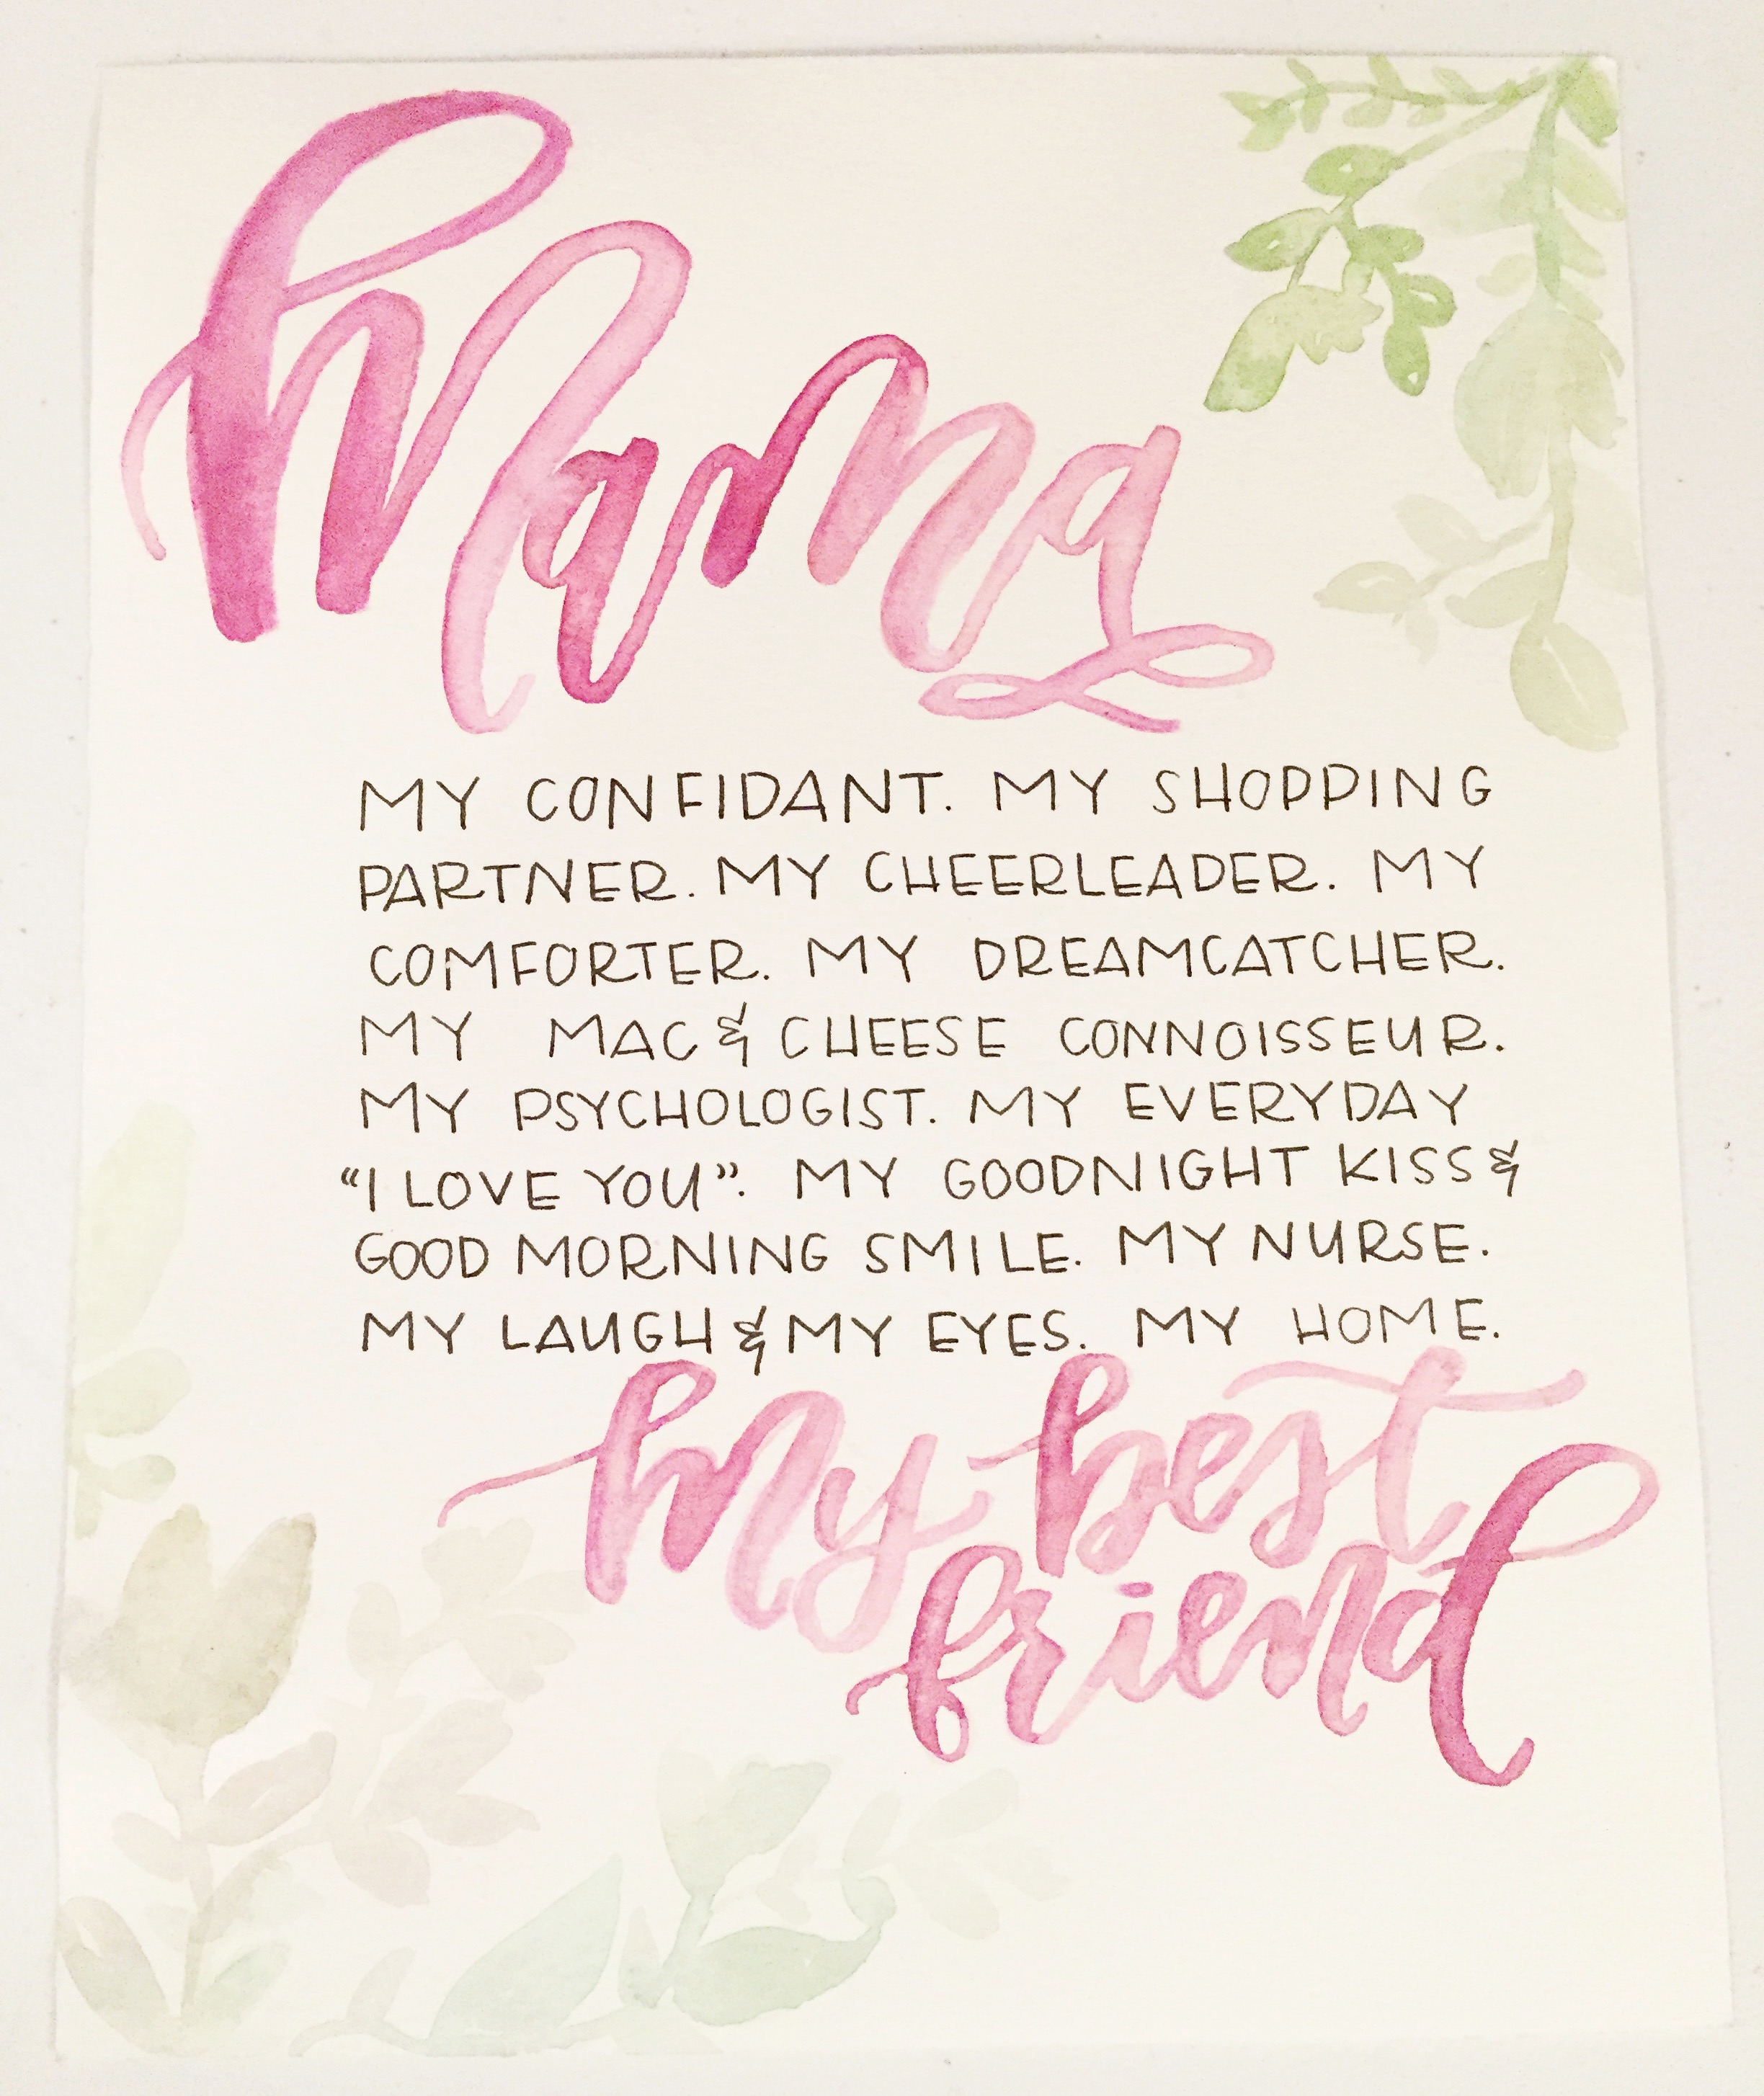 Mama
MY CONFIDANT. MY SHOPPING
PARTNER. MY CHEERLEADER. MY
COMFORTER. MY DREAMCATCHER.
MY MAC & CHEESE CONNOISSEUR.
MY PSYCHOLOGIST. MY EVERYDAY
“I LOVE YOU”. MY GOODNIGHT KISS &
GOOD MORNING SMILE. MY NURSE.
MY LAUGH & MY EYES. MY HOME.
my best
friend